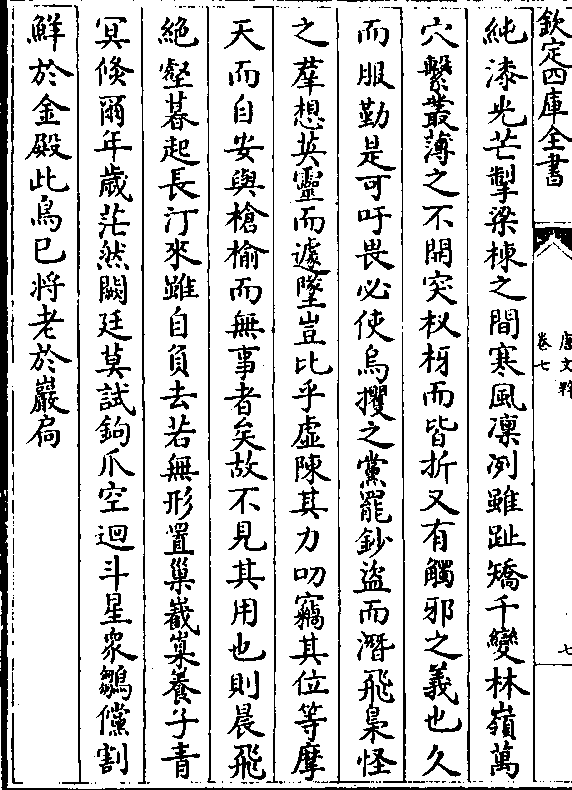 欽定四庫全書
唐文粹
卷七
七
純漆光芒掣梁棟之間寒風凛冽雖趾矯千變林嶺萬
穴繫叢薄之不開突杈枒而皆折又有觸邪之義也久
而服勤是可吁畏必使烏攫之黨罷鈔盗而潛飛梟怪
之羣想英靈而遽墜豈比乎虛陳其力叨竊其位等摩
天而自安與槍榆而無事者矣故不見其用也則晨飛
絶壑暮起長汀來雖自負去若無形置巢嶻嶪養子青
冥倐爾年歲茫然闕廷莫試鉤爪空迴斗星衆鶵儻割
鮮於金殿此鳥已將老於巖扃